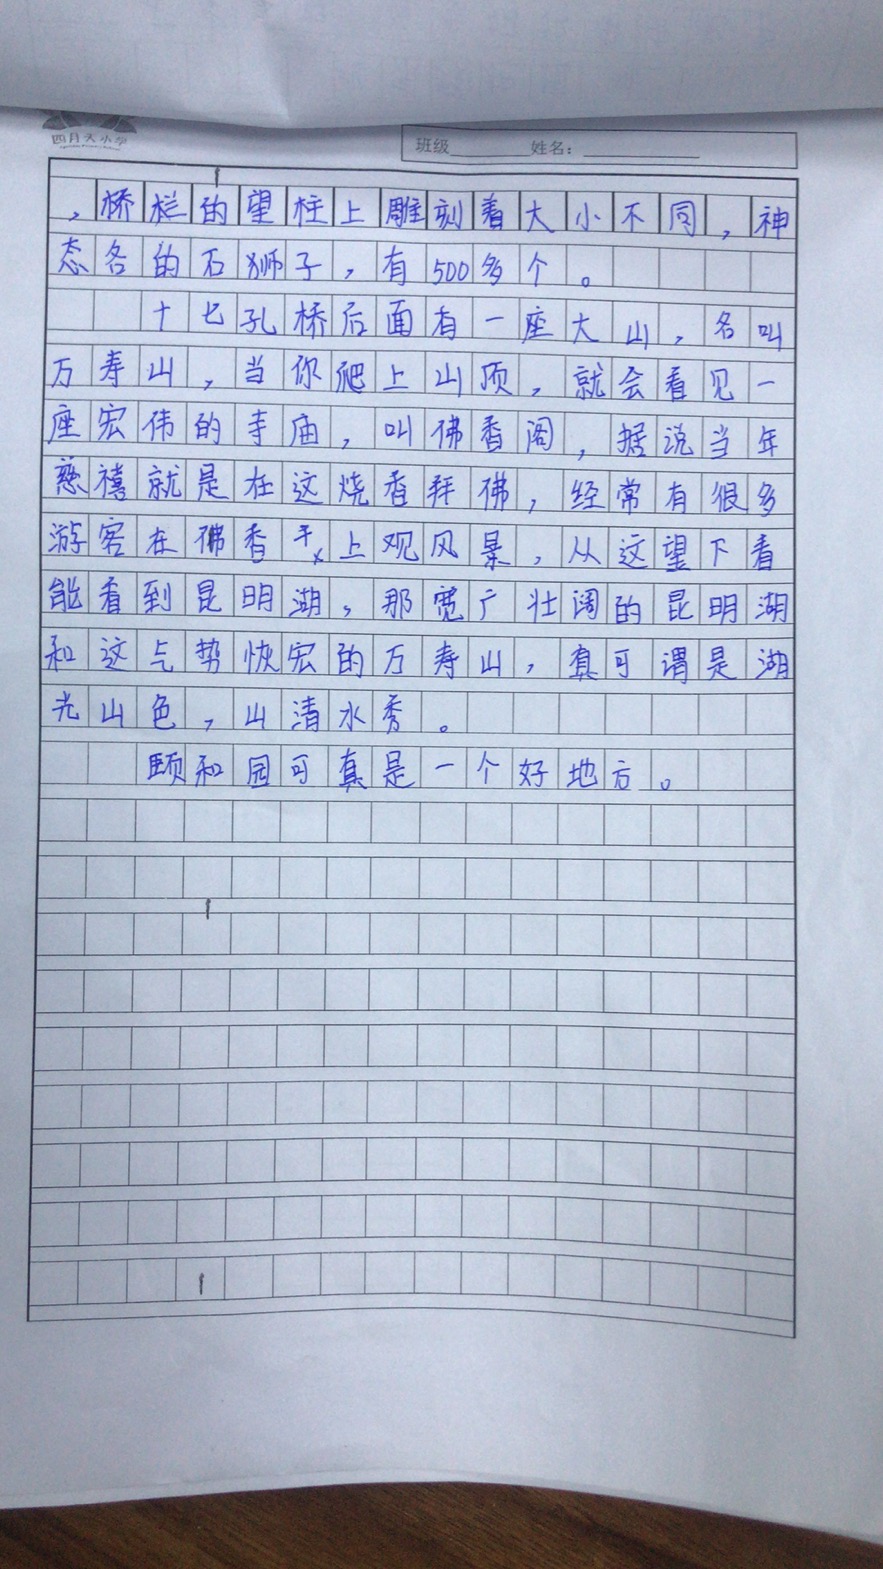 四月天小学
班级 姓名：
，桥栏的望柱上雕刻着大小不同，神
态各的石狮子，有500多个。
十七孔桥后面有一座大山，名叫
万寿山，当你爬上山顶，就会看见一
座宏伟的寺庙，叫佛香阁，据说当年
慈禧就是在这烧香拜佛，经常有很多
游客在佛香上观风景，从这望下看
能看到昆明湖，那宽广壮阔的昆明湖
和这气势恢宏的万寿山，真可谓是湖
光山色，山清水秀。
颐和园可真是一个好地方。